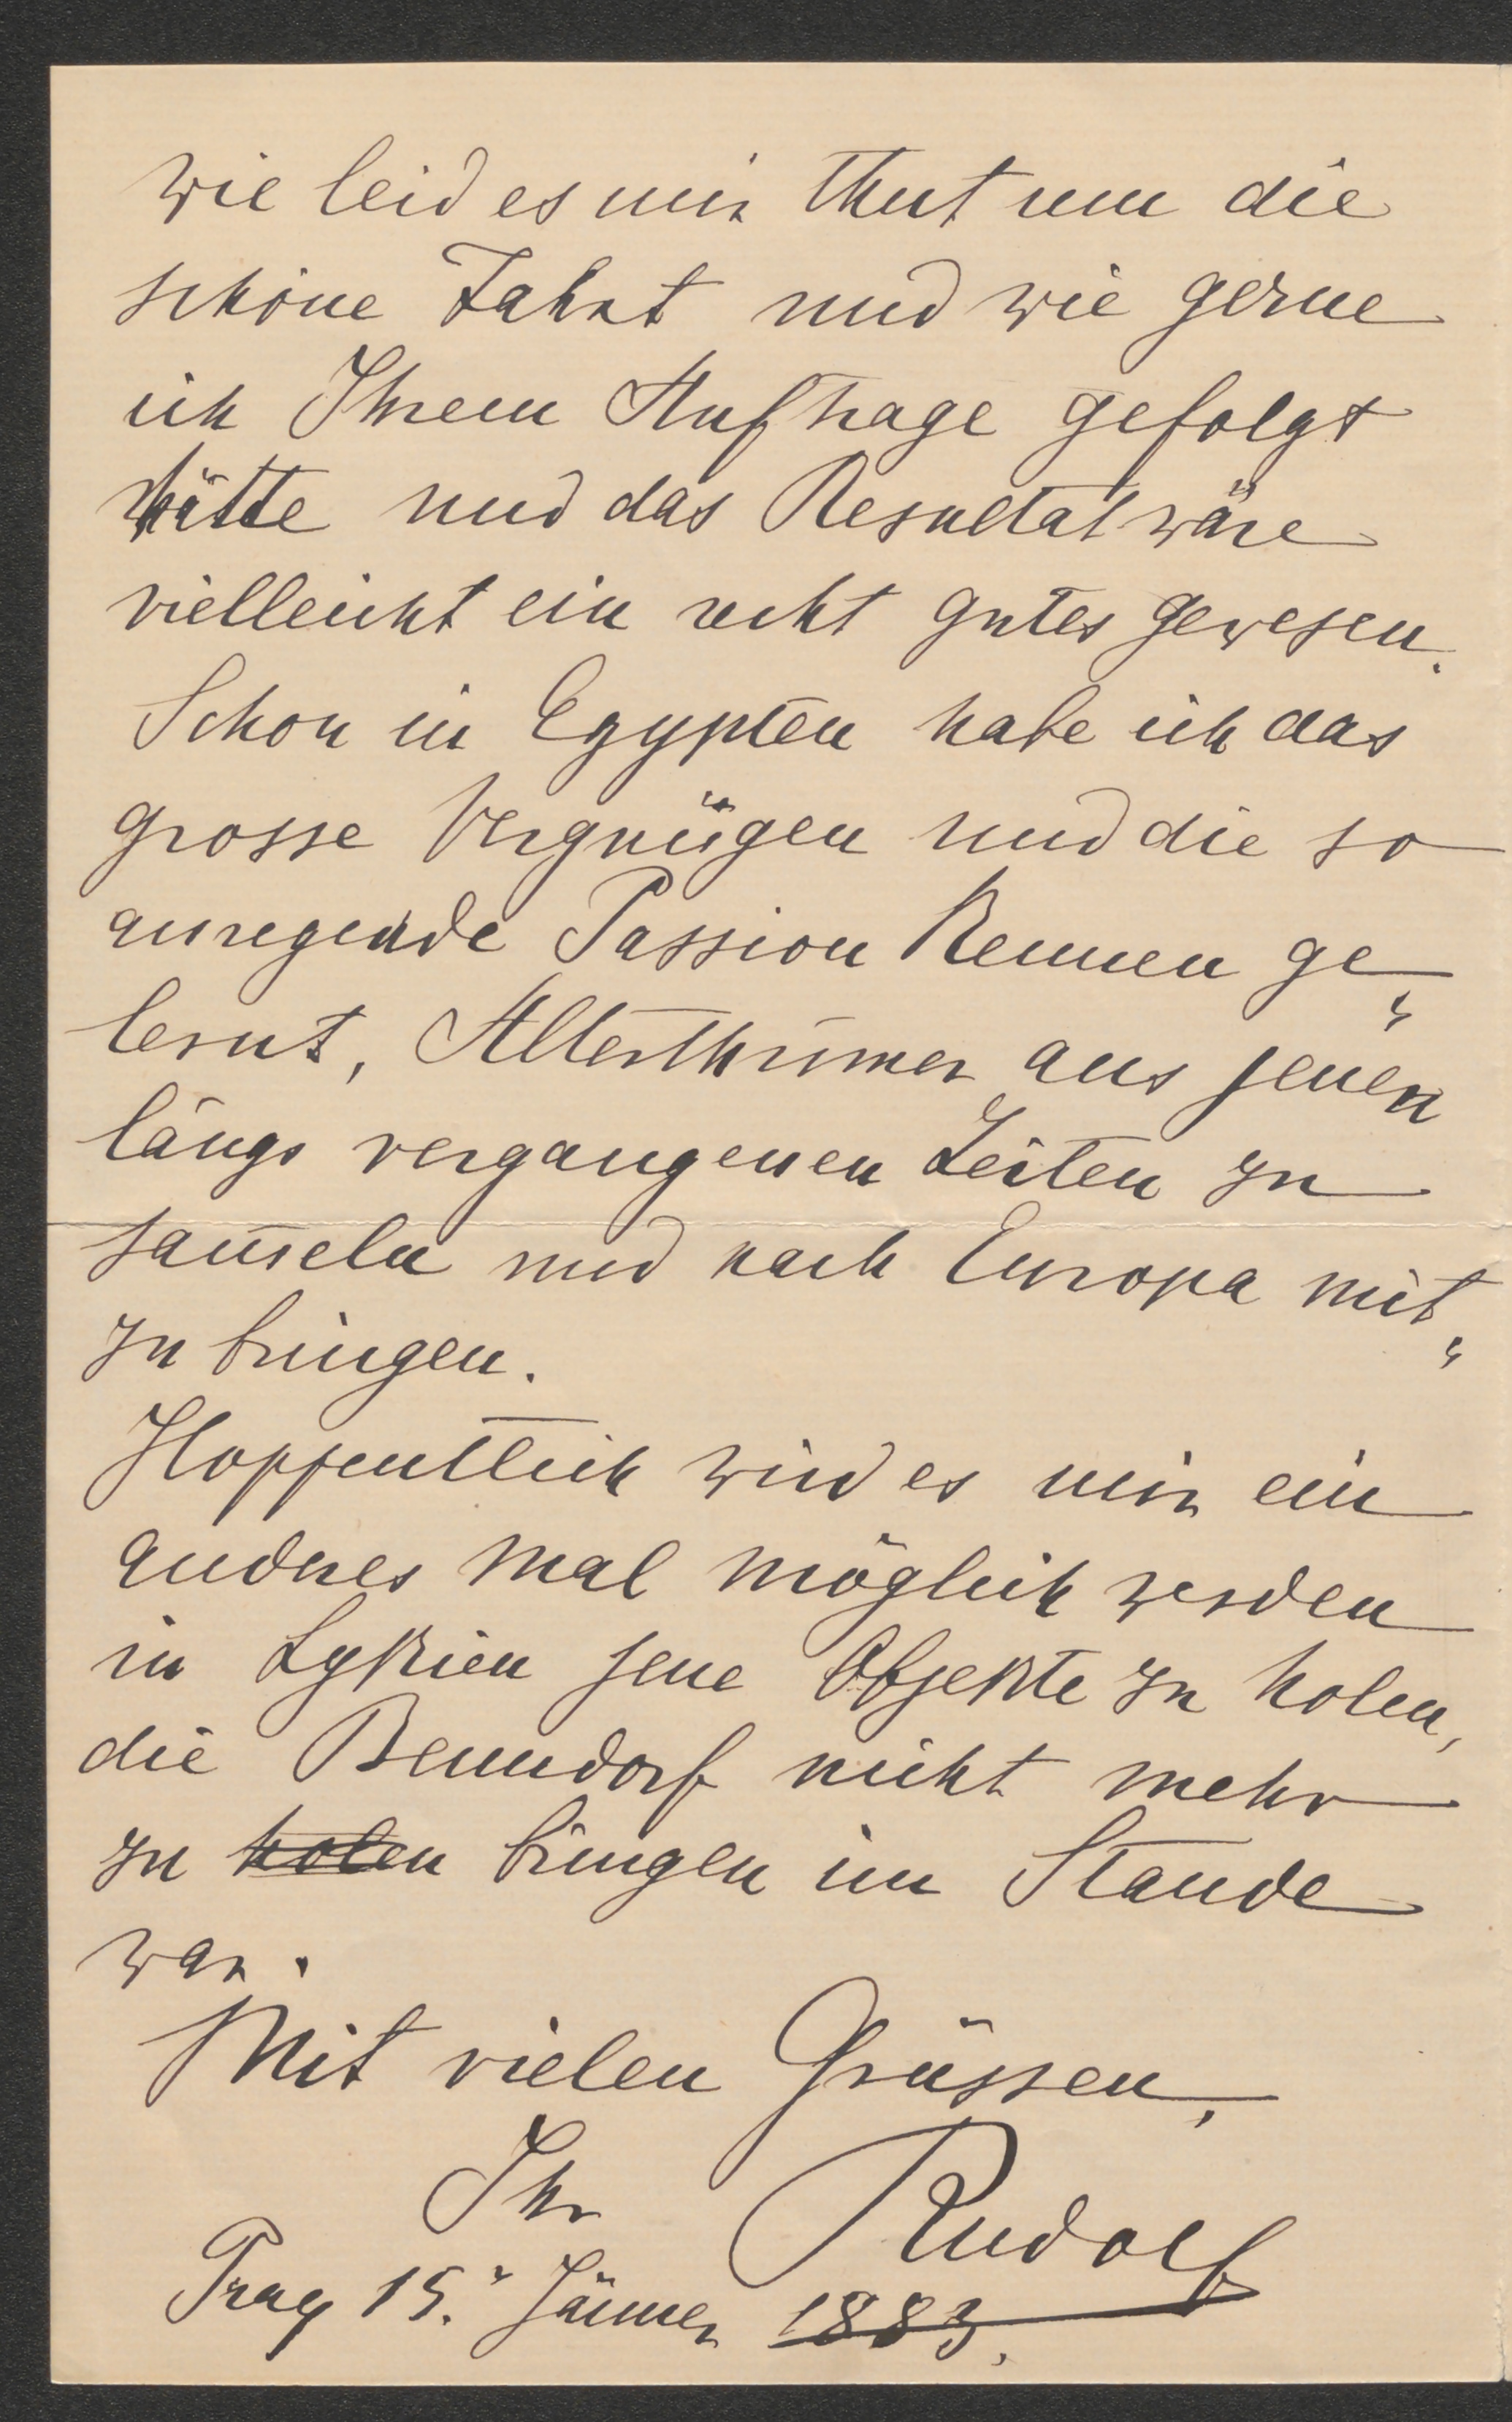 wie leid es mir thut um die
schöne Fahrt und wie gerne
ich Ihrem Auftrage gefolgt
hätte und das Resultat wäre
vielleicht ein recht gutes gewesen.
Schon in Egypten habe ich das
grosse Vergnügen und die so
anregende Passion kennen ge„
lernt, Alterthümer aus jenen
längs vergangenen Zeiten zu
sam̅eln und nach Europa mit„
zu bringen.
Hoffentlich wird es mir ein
andres Mal möglich werden
in Lykien jene Objekte zu holen,
die Benndorf nicht mehr
zu holen bringen im Stande
war.
Mit vielen Grüssen,
Ihr Rudolf
Prag 15. Jänner 1883.